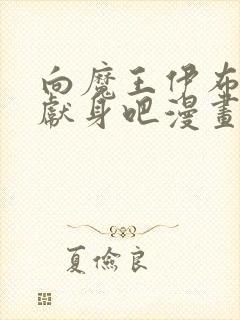 向魔王伊布
獻身吧漫畫
夏儉良